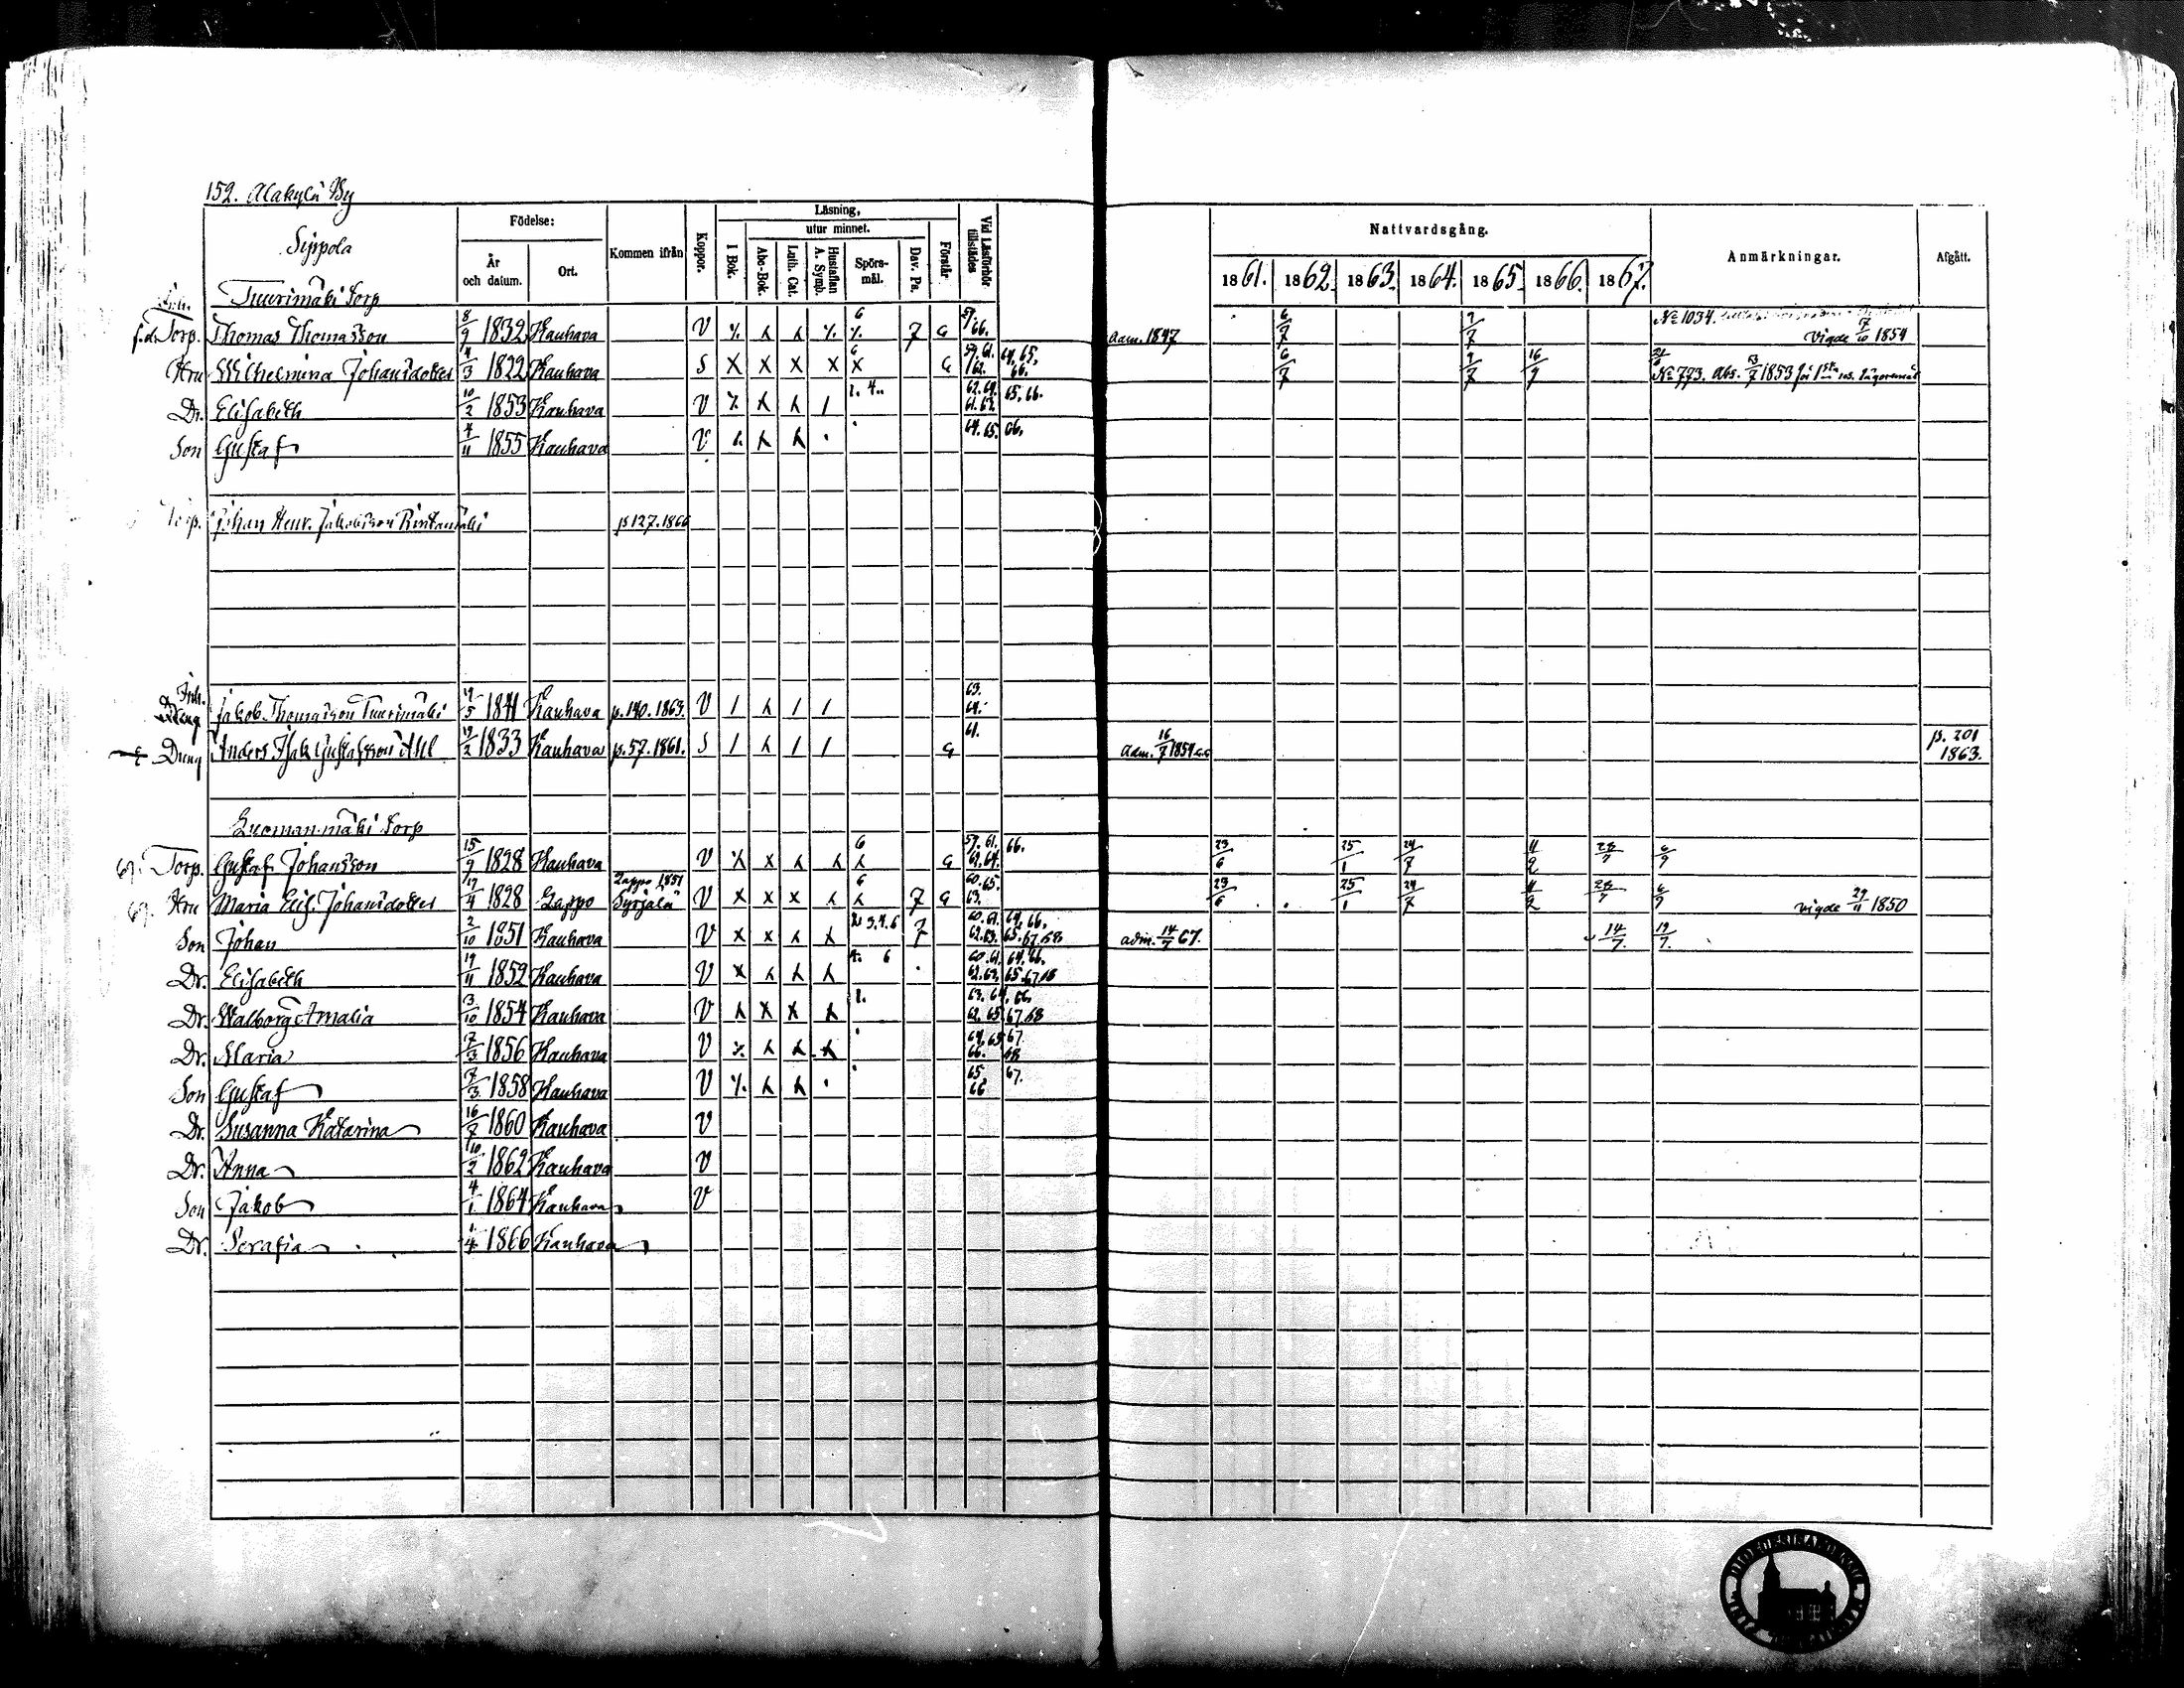 152. Alakylä By
Sippola
Födelse: År och datum. Ort. Kommen ifrån Koppor. Läsning, I Bok. utur minnet. Abc-Bok. Luth. Cat. Hustaflan A. Symb. Spörs-mål. Dav. Ps. Förstår Vid Läsförhör tillstädes
Nattvardsgång. 1861. 1862. 1863. 1864. 1865. 1866. 1867. Anmärkningar. Afgått.
Inh. Tuurimäki Torp
f.d. Torp. Thomas Thomasson 8/9 1832 Kauhava V 6 7 G 66. adm. 1847 6/7 9/7 No 1034. Vigde 7/10 1854
Hru Wilhelmina Johansdotter 4/3 1822 Kauhava S X X X X X 6 G 59. 61. 62. 64. 65. 66. 6/7 9/7 16/7 No 773. Abs. 1853 för 1sta res. lägersmål
Dr. Elisabeth 10/2 1853 Kauhava V 1. 4. 62. 64. 61. 63. 65. 66.
Son Gustaf 4/11 1855 Kauhava V 64. 65. 66.
Torp. Johan Henr. Jakobsson Rintamäki p 127. 1866
Inh. Dräng Jakob Thomasson Tuurimäki 19/5 1841 Kauhava p. 140. 1863. V 63. 64.
Dräng Anders Isak Gustafsson 19/2 1833 Kauhava p. 57. 1861. S G 61. adm. 16/7 1854 p. 201 1863.
Luomanmäki Torp
67. Torp. Gustaf Johansson 15/9 1828 Kauhava V 6 G 59. 61. 62. 64. 66. 23/6 25/1 24/7 11/2 28/7 6/9
69. Hru Maria Elis. Johansdotter 17/4 1828 Lappo Lappo 1851 Syrjälä V X X X 6 7 G 60. 65. 63. 23/6 25/1 24/7 11/2 28/7 6/9 vigde 29/11 1850
Son Johan 2/10 1851 Kauhava V 2. 3. 4. 6 7 60. 61. 62. 63. 64. 66. 65. 67. 68. adm. 14/7 67. 14/7. 19/7.
Dr. Elisabeth 19/11 1852 Kauhava V 4. 6 60. 61. 62. 63. 64. 66. 65. 67. 68
Dr. Walborg Amalia 3/10 1854 Kauhava V 1. 63. 64. 66. 62. 65. 67. 68
Dr. Maria 7/3 1856 Kauhava V 64. 65 67. 66. 68
Son Gustaf 7/3 1858 Kauhava V 65. 66 67.
Dr. Susanna Katarina 16/7 1860 Kauhava V
Dr. Anna 10/2 1862 Kauhava V
Son Jakob 4/1 1864 Kauhava V
Dr. Serafia 1/4 1866 Kauhava